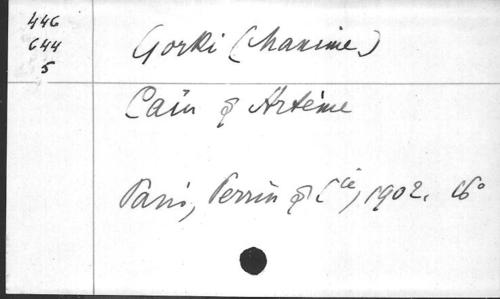 446
644
5
Gorki (Maxime)
Caïn & Artème
Paris, Perrin & Cie, 1902. 16°